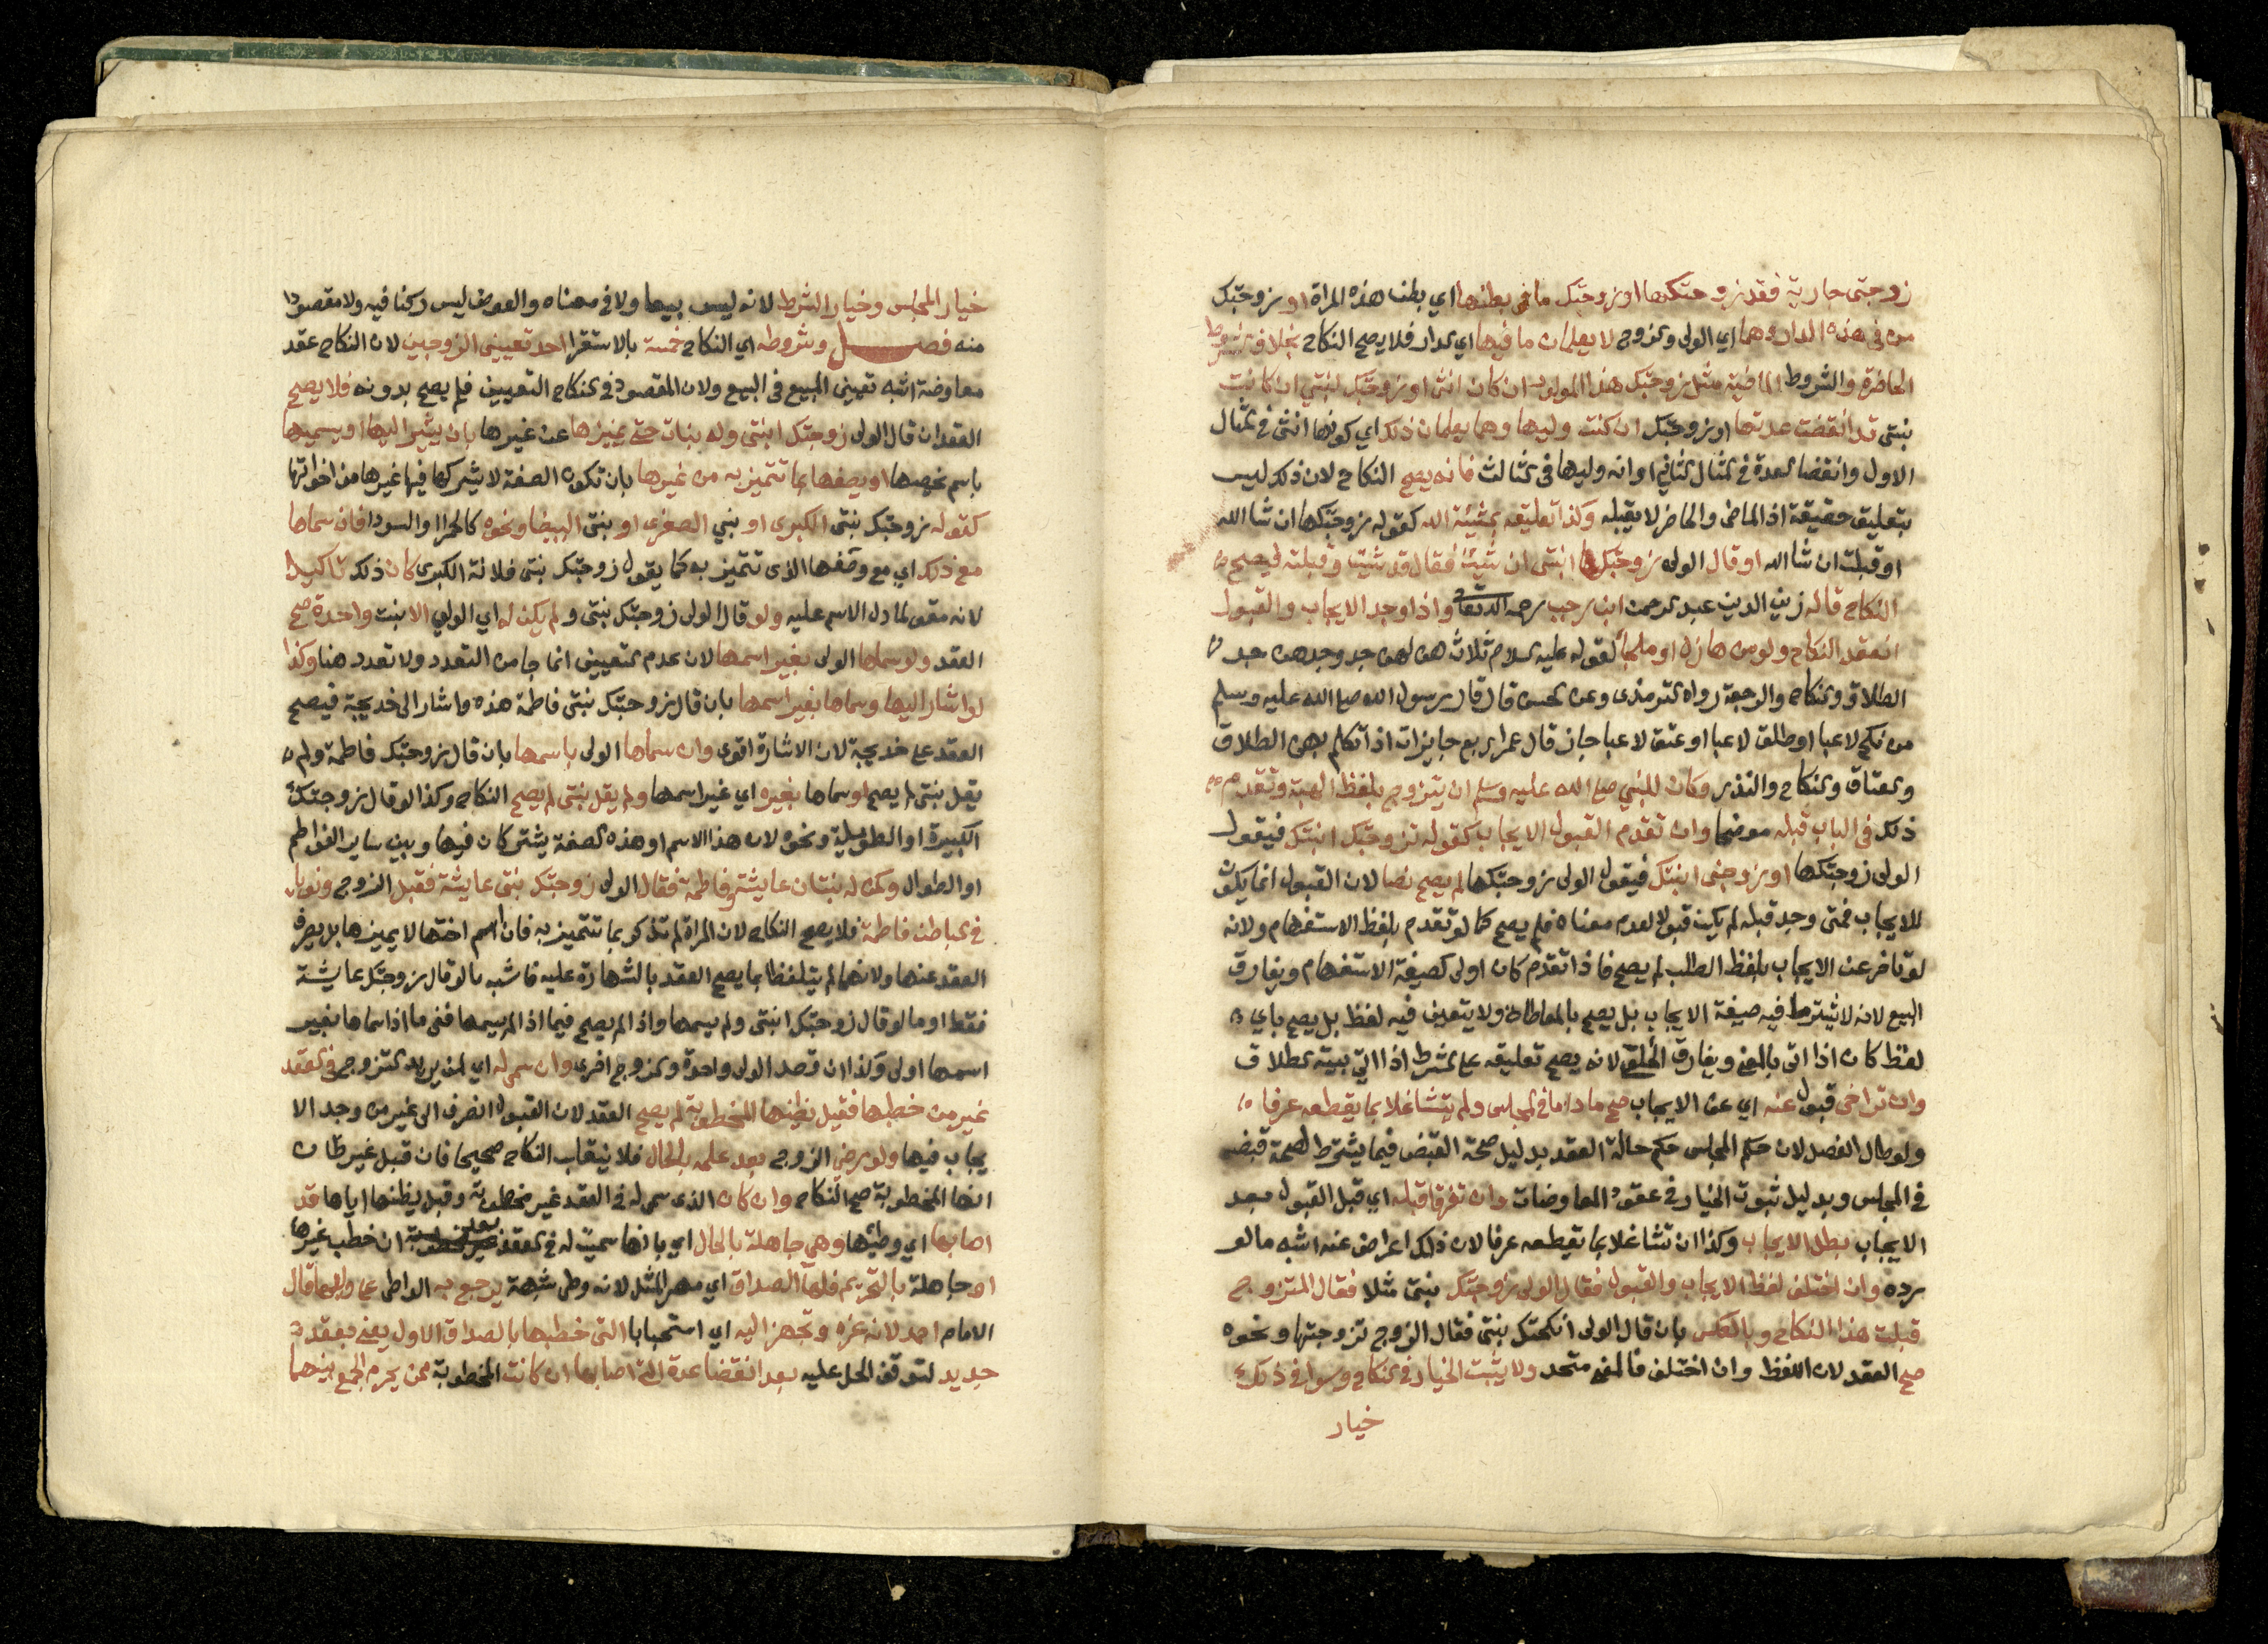 زوجتى جارية فقد زوجتكها او زوجتك ما فى بطنها اي بطن هذه المراة او زوجتك
من فى هذه الدار وهما اي الولى والزوج لا يعلمان ما فيها اي الدار فلا يصح النكاح بخلاف الشروط
الحاضرة والشروط الماضية مثل زوجتك هذا المولود ان كان انثى او زوجتك ابنتي ان كانت
بنتى قد انقضت عدتها او زوجتك ان كنت وليها وهما يعلمان ذلك اي كونها انثى فى المثال
الاول وانقضا العدة فى المثال الثاني او انه وليها فى الثالث فانه يصح النكاح لان ذلك ليس
بتعليق حقيقة اذ الماضى والحاضر لا يقبله وكذا تعليقه بمشيئة الله كقوله زوجتكها ان شا الله
او قبلت ان شا الله او قال الولى زوجتك ابنتى ان شئت فقال قد شئت وقبلت فيصح
النكاح قاله زين الدين عبد الرحمن ابن رجب رحمه الله تعالى واذا وجد الايجاب والقبول
انعقد النكاح ولو من هازل او ملجأ لقوله عليه السلام ثلاث هزلهن جد وجدهن جد
الطلاق والنكاح والرجعة رواه الترمذى وعن الحسن قال قال رسول الله صلى الله عليه وسلم
من نكح لاعبا او طلق لاعبا او عتق لاعبا جاز قال عمر اربع جايزات اذا تكلم بهن الطلاق
والعتاق والنكاح والنذر وكان للنبي صلى الله عليه وسلم ان يتزوج بلفظ الهبة وتقدم
ذلك فى الباب قبله موضحا وان تقدم القبول الايجاب كقوله تزوجت ابنتك فيقول
الولى زوجتكها او زوجنى ابنتك فيقول الولى زوجتكها لم يصح نصا لان القبول انما يكون
للايجاب فمتى وجد قبله لم يكن قبولا لعدم معناه فلم يصح كما لو تقدم بلفظ الاستفهام ولانه
لو تاخر عن الايجاب بلفظ الطلب لم يصح فاذا تقدم كان اولى كصيغة الاستفهام ويفارق
البيع لانه لا يشترط فيه صيغة الايجاب بل يصح بالمعاطاة ولا يتعين فيه لفظ بل يصح باي
لفظ كان اذا اتى بالمعنى ويفارق الخلع لانه يصح تعليقه على الشرط اذا نوى به الطلاق
وان تراخى قبول عنه اي عن الايجاب صح ما داما فى المجلس ولم يتشاغلا بما يقطعه عرفا
ولو طال الفصل لان حكم المجلس حكم حالة العقد بدليل صحة القبض فيما يشترط لصحة قبضه
فى المجلس وبدليل ثبوت الخيار فى عقود المعاوضات وان تفرقا قبله اي قبل القبول بعد
الايجاب بطل الايجاب وكذا ان تشاغلا بما يقطعه عرفا لان ذلك اعراض عنه اشبه ما لو
رده وان اختلف لفظ الايجاب والقبول فقال الولى زوجتك بنتى مثلا فقال المتزوج
قبلت هذا النكاح وبالعكس بان قال الولى انكحتك بنتى فقال الزوج تزوجتها ونحوه
صح العقد لان اللفظ وان اختلف فالمعنى متحد ولا يثبت الخيار فى النكاح وسوا فى ذلك
خيار
خيار المجلس وخيار الشرط لانه ليس بيعا ولا فى معناه والعوض ليس ركنا فيه ولا مقصودا
منه فصل وشروطه اي النكاح خمسة بالاستقرا احد تعيين الزوجين لان النكاح عقد
معاوضة اشبه تعيين المبيع فى البيع ولان المقصود فى النكاح التعيين فلم يصح بدونه فلا يصح
العقد ان قال الولى زوجتك ابنتى وله بنات حتى يميزها عن غيرها بان يشير اليها او يسميها
باسم يخصها او يصفها بما تتميز به من غيرها بان تكون الصفة لا يشركها فيها غيرها من اخواتها
كقوله زوجتك بنتى الكبرى او بنتي الصغرى او بنتى البيضا ونحوه كالحمرا والسودا فان سماها
مع ذلك اي مع وصفها الذى تتميز به كما يقول زوجتك بنتى فلانة الكبرى كان ذلك تاكيدا
لانه مقو لما دل الاسم عليه ولو قال الولى زوجتك بنتى ولم يكن له اي الولي الا بنت واحدة صح
العقد ولو سماها الولى بغير اسمها لان عدم التعيين انما جا من التعدد ولا تعدد هنا وكذا
لو اشار اليها وسماها بغير اسمها بان قال زوجتك بنتى فاطمة هذه واشار الى خديجة فيصح
العقد على خديجة لان الاشارة اقوى وان سماها الولى باسمها بان قال زوجتك فاطمة ولم
يقل بنتى لم يصح او سماها بغيره اي غير اسمها ولم يقل بنتى لم يصح النكاح وكذا لو قال زوجتك
الكبيرة او الطويلة ونحوه لان هذا الاسم او هذه الصفة يشتركان فيها وبين ساير الفواطم
او الطوال ومن له بنتان عايشة وفاطمة فقال الولى زوجتك بنتى عايشة فقبل الزوج ونويا
فى الباطن فاطمة فلا يصح النكاح لان المراة لم تذكر بما تتميز به فان اسم اختها لا يميزها بل يصرف
العقد عنها ولانهما لم يتلفظا بما يصح العقد بالشهادة عليه فاشبه ما لو قال زوجتك عايشة
فقط او ما لو قال زوجتك ابنتى ولم يسمها واذا لم يصح فيما اذا لم يسمها ففى ما اذا سماها بغير
اسمها اولى وكذا ان قصد الولى واحدة والزوج اخرى وان سمى له اي لمن يريد التزوج فى العقد
غير من خطبها فقبل يظنها المخطوبة لم يصح العقد لان القبول انصرف الى غير من وجد الا
يجاب فيها ولو رضى الزوج بعد علمه بالحال فلا ينقلب النكاح صحيحا فان قبل غير ظان
انها المخطوبة صح النكاح وان كان الذى سمى له فى العقد غير مخطوبته وقبل يظنها اياها قد
اصابها اي وطئها وهي جاهلة بالحال اي بانها سميت له فى العقد بعد ان خطب غيرها
او جاهلة بالتحريم فلها الصداق اي مهر المثل لانه وطى شبهة يرجع به الواطى على وليها قال
الامام احمد لانه غره وتجهز اليه اي استحبابا التى خطبها بالصداق الاول يعنى بعقد
جديد لتوقف الحل عليه بعد انقضا عدة التى اصابها ان كانت المخطوبة ممن يحرم الجمع بينهما